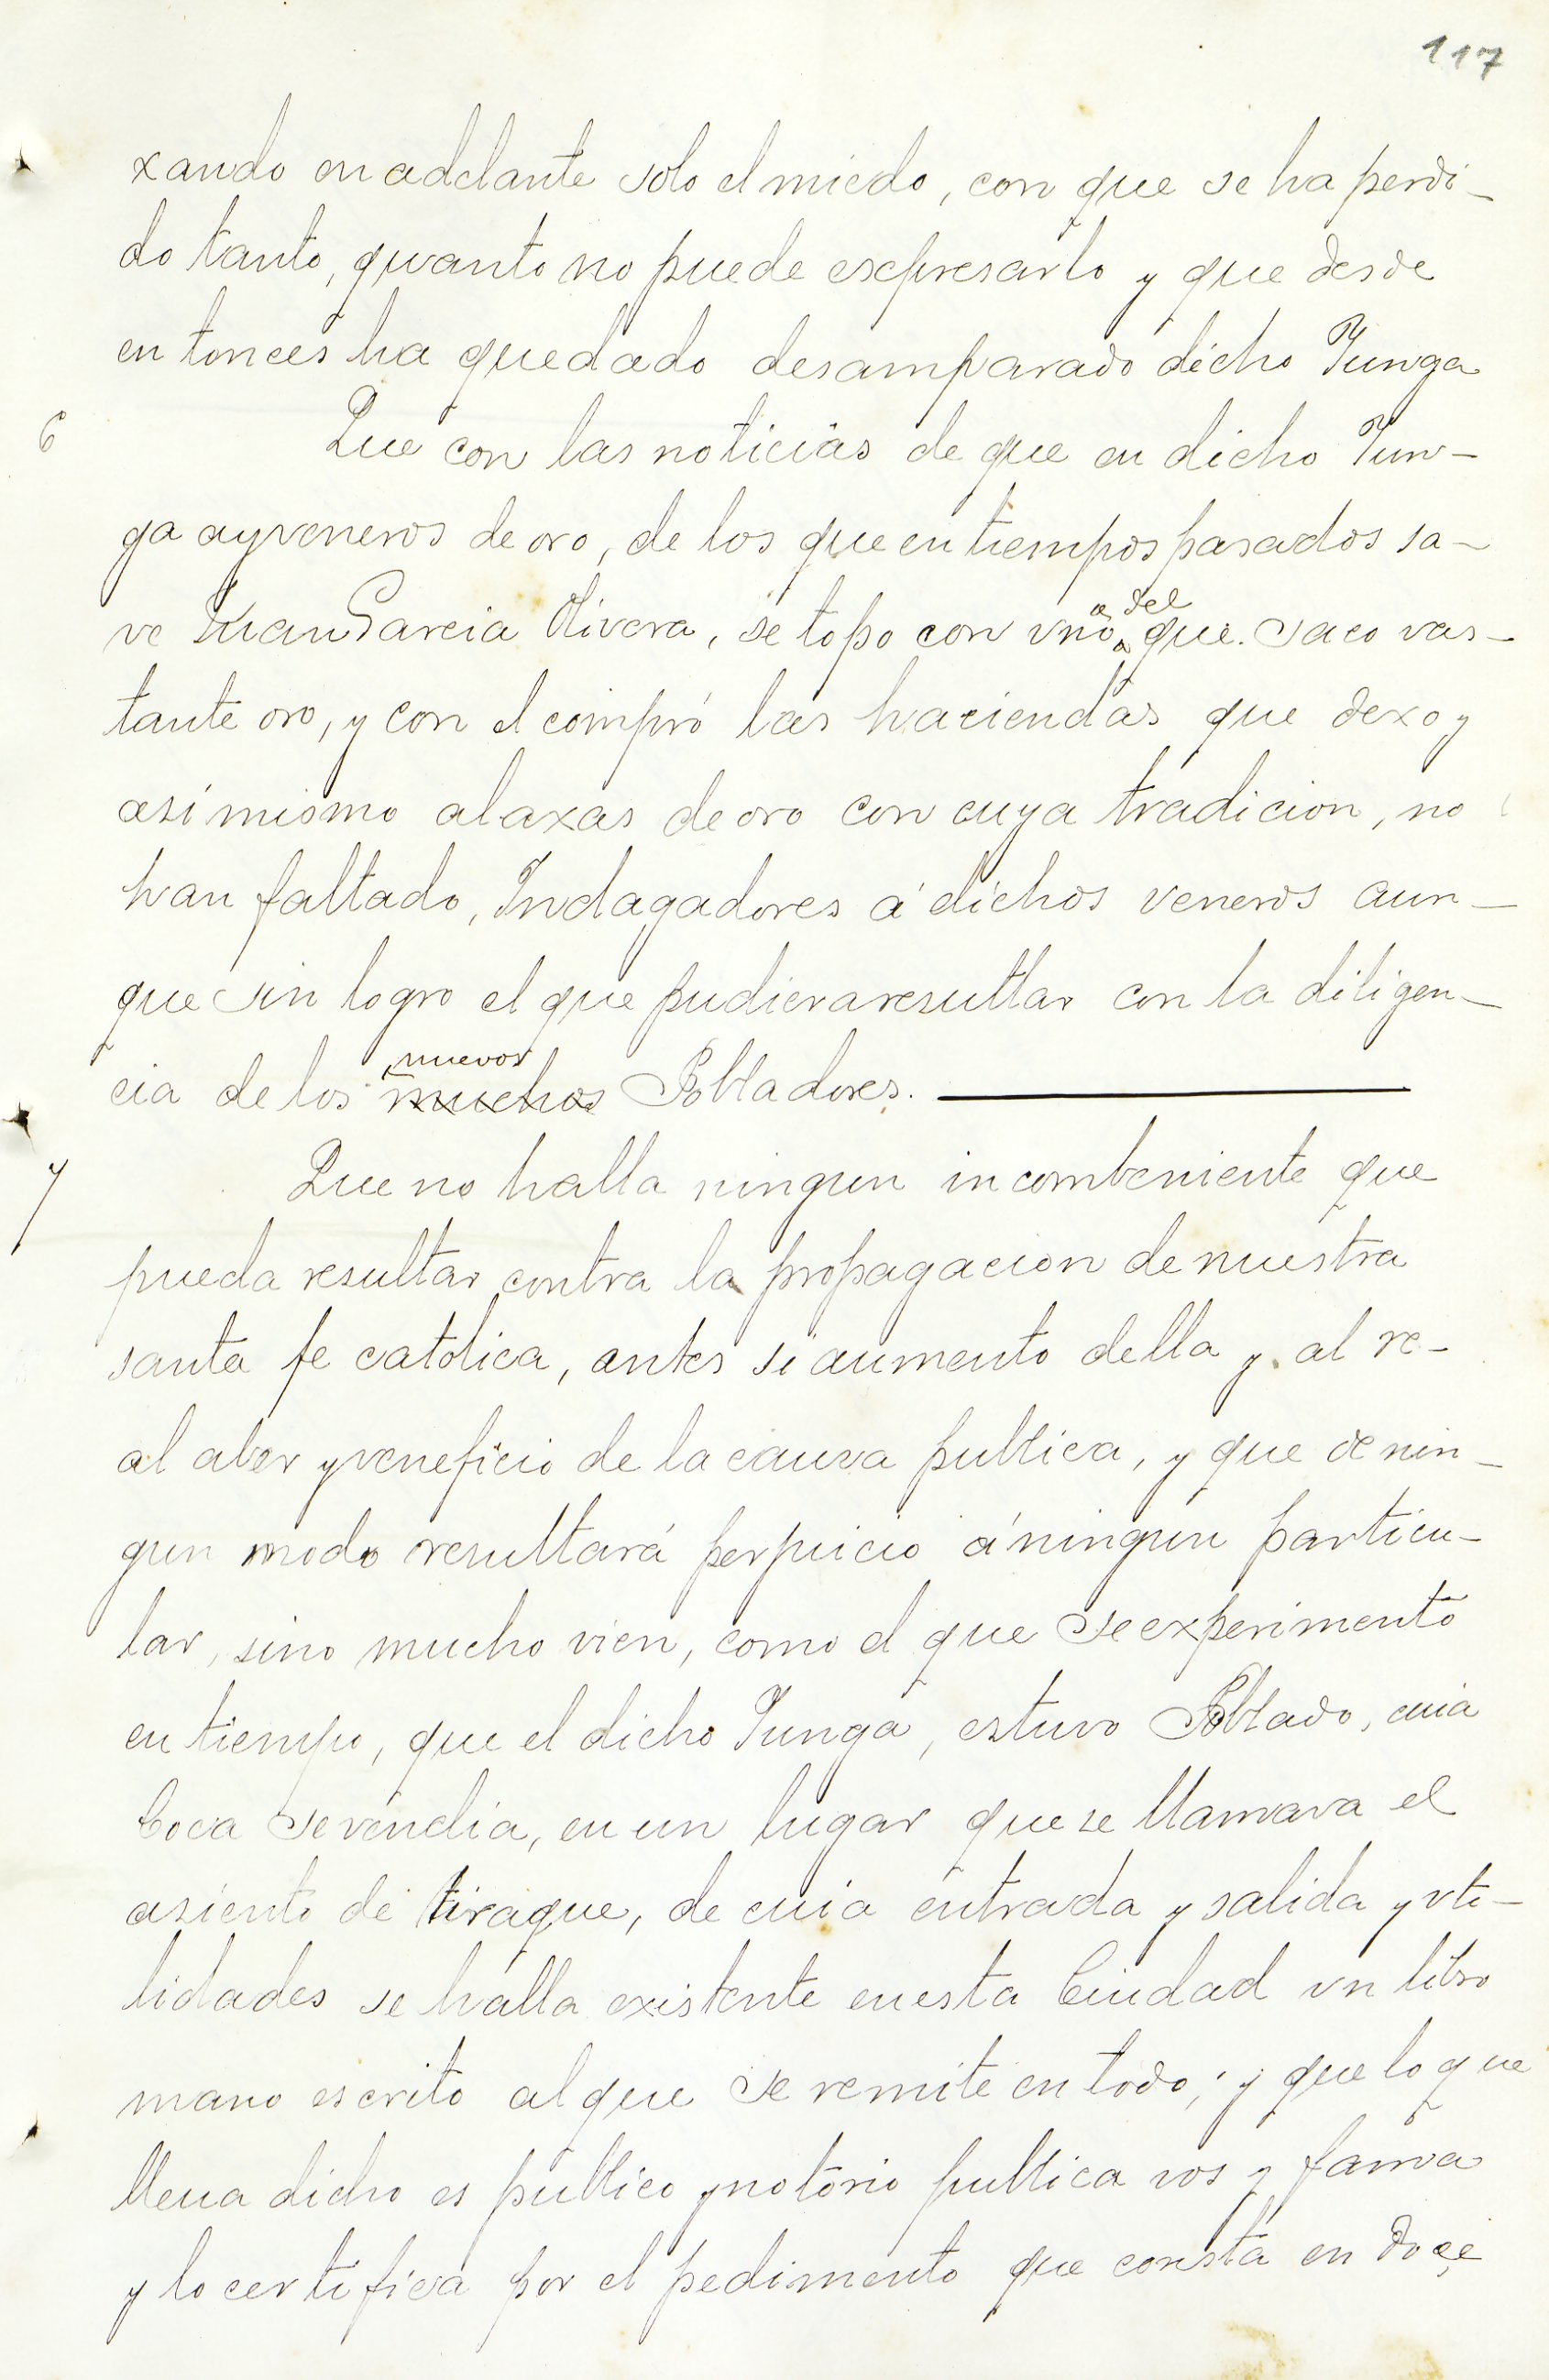 117
xando en adelante solo el miedo, con que se ha perdi-
do tanto, quanto no puede expresarlo y que desde
entonces ha quedado desamparado dicho Yunga
6 Que con las noticias de que en dicho Yun-
ga ay veneros de oro, de los que en tiempos pasados sa-
ve Juan Garcia Olivera, se topo con vno del que saco vas-
tante oro, y con el compró las haciendas que dexo y
asi mismo alaxas de oro con cuya tradicion, no
han faltado, Indagadores á dichos veneros aun-
que sin logro el que pudiera resultar con la diligen-
cia de los nuevos muchos Pobladores.
7 Que no halla ningun incombeniente que
pueda resultar contra la propagacion de nuestra
santa fe catolica, antes si aumento della y al re-
al aber y veneficio de la causa publica, y que de nin-
gun modo resultará perjuicio á ningun particu-
lar, sino mucho vien, como el que se experimento
en tiempo, que el dicho Yunga, estuvo Poblado, cuia
Coca se vendia, en un lugar que se llamava el
asiento de tiraque, de cuia entrada y salida y vti-
lidades se halla existente en esta Ciudad vn libro
mano escrito al que se remite en todo; y que lo que
lleua dicho es publico y notorio publica vos y fama
y lo certifica por el pedimento que consta en doçe